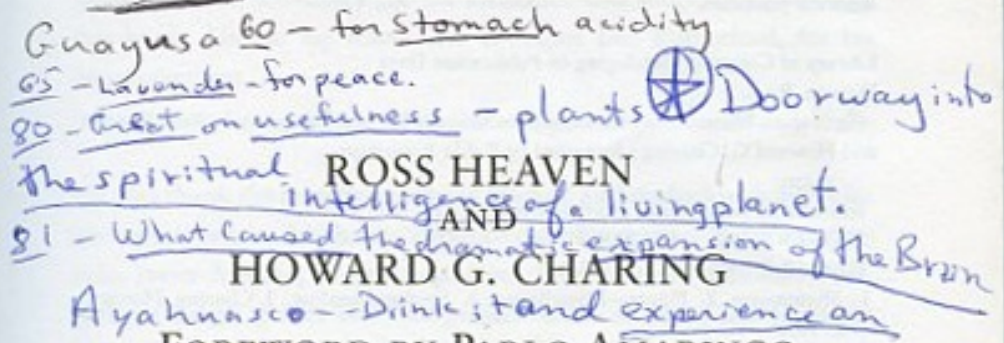 Guayusa 60 - for stomach acidity
65 - Lavender - for peace.
80 - Great on usefulness - plants Doorway into
the spiritual
ROSS HEAVEN
intelligence of a living planet.
AND
81 - What Caused the dramatic expansion of the Brain
HOWARD G. CHARING
Drink it and experience an
FOREWORD BY PABLO AMARINGO